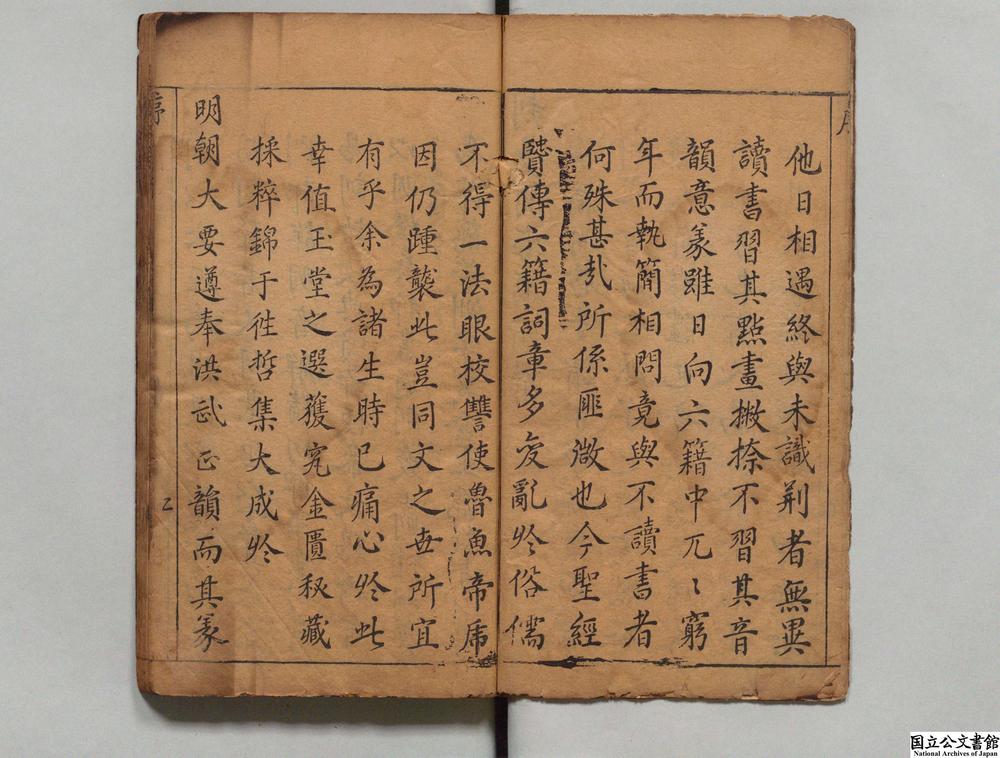 他日相遇終與未識荆者無異
讀書習其點畫撇捺不習其音
韻意義雖日向六籍中兀〻窮
年而執簡相問竟與不讀書者
何殊甚㢤所係匪微也今聖經
賢傳六籍詞章多變亂於俗儒
不得一法眼校讐使魯魚帝虎
因仍踵襲此豈同文之世所宜
有乎余為諸生時已痛心於此
幸值玉堂之選獲究金匱秘藏
採粹錦于徃哲集大成於
明朝大要遵奉洪武正韻而其義
序
二
国立公文書館
National Archives of Japan